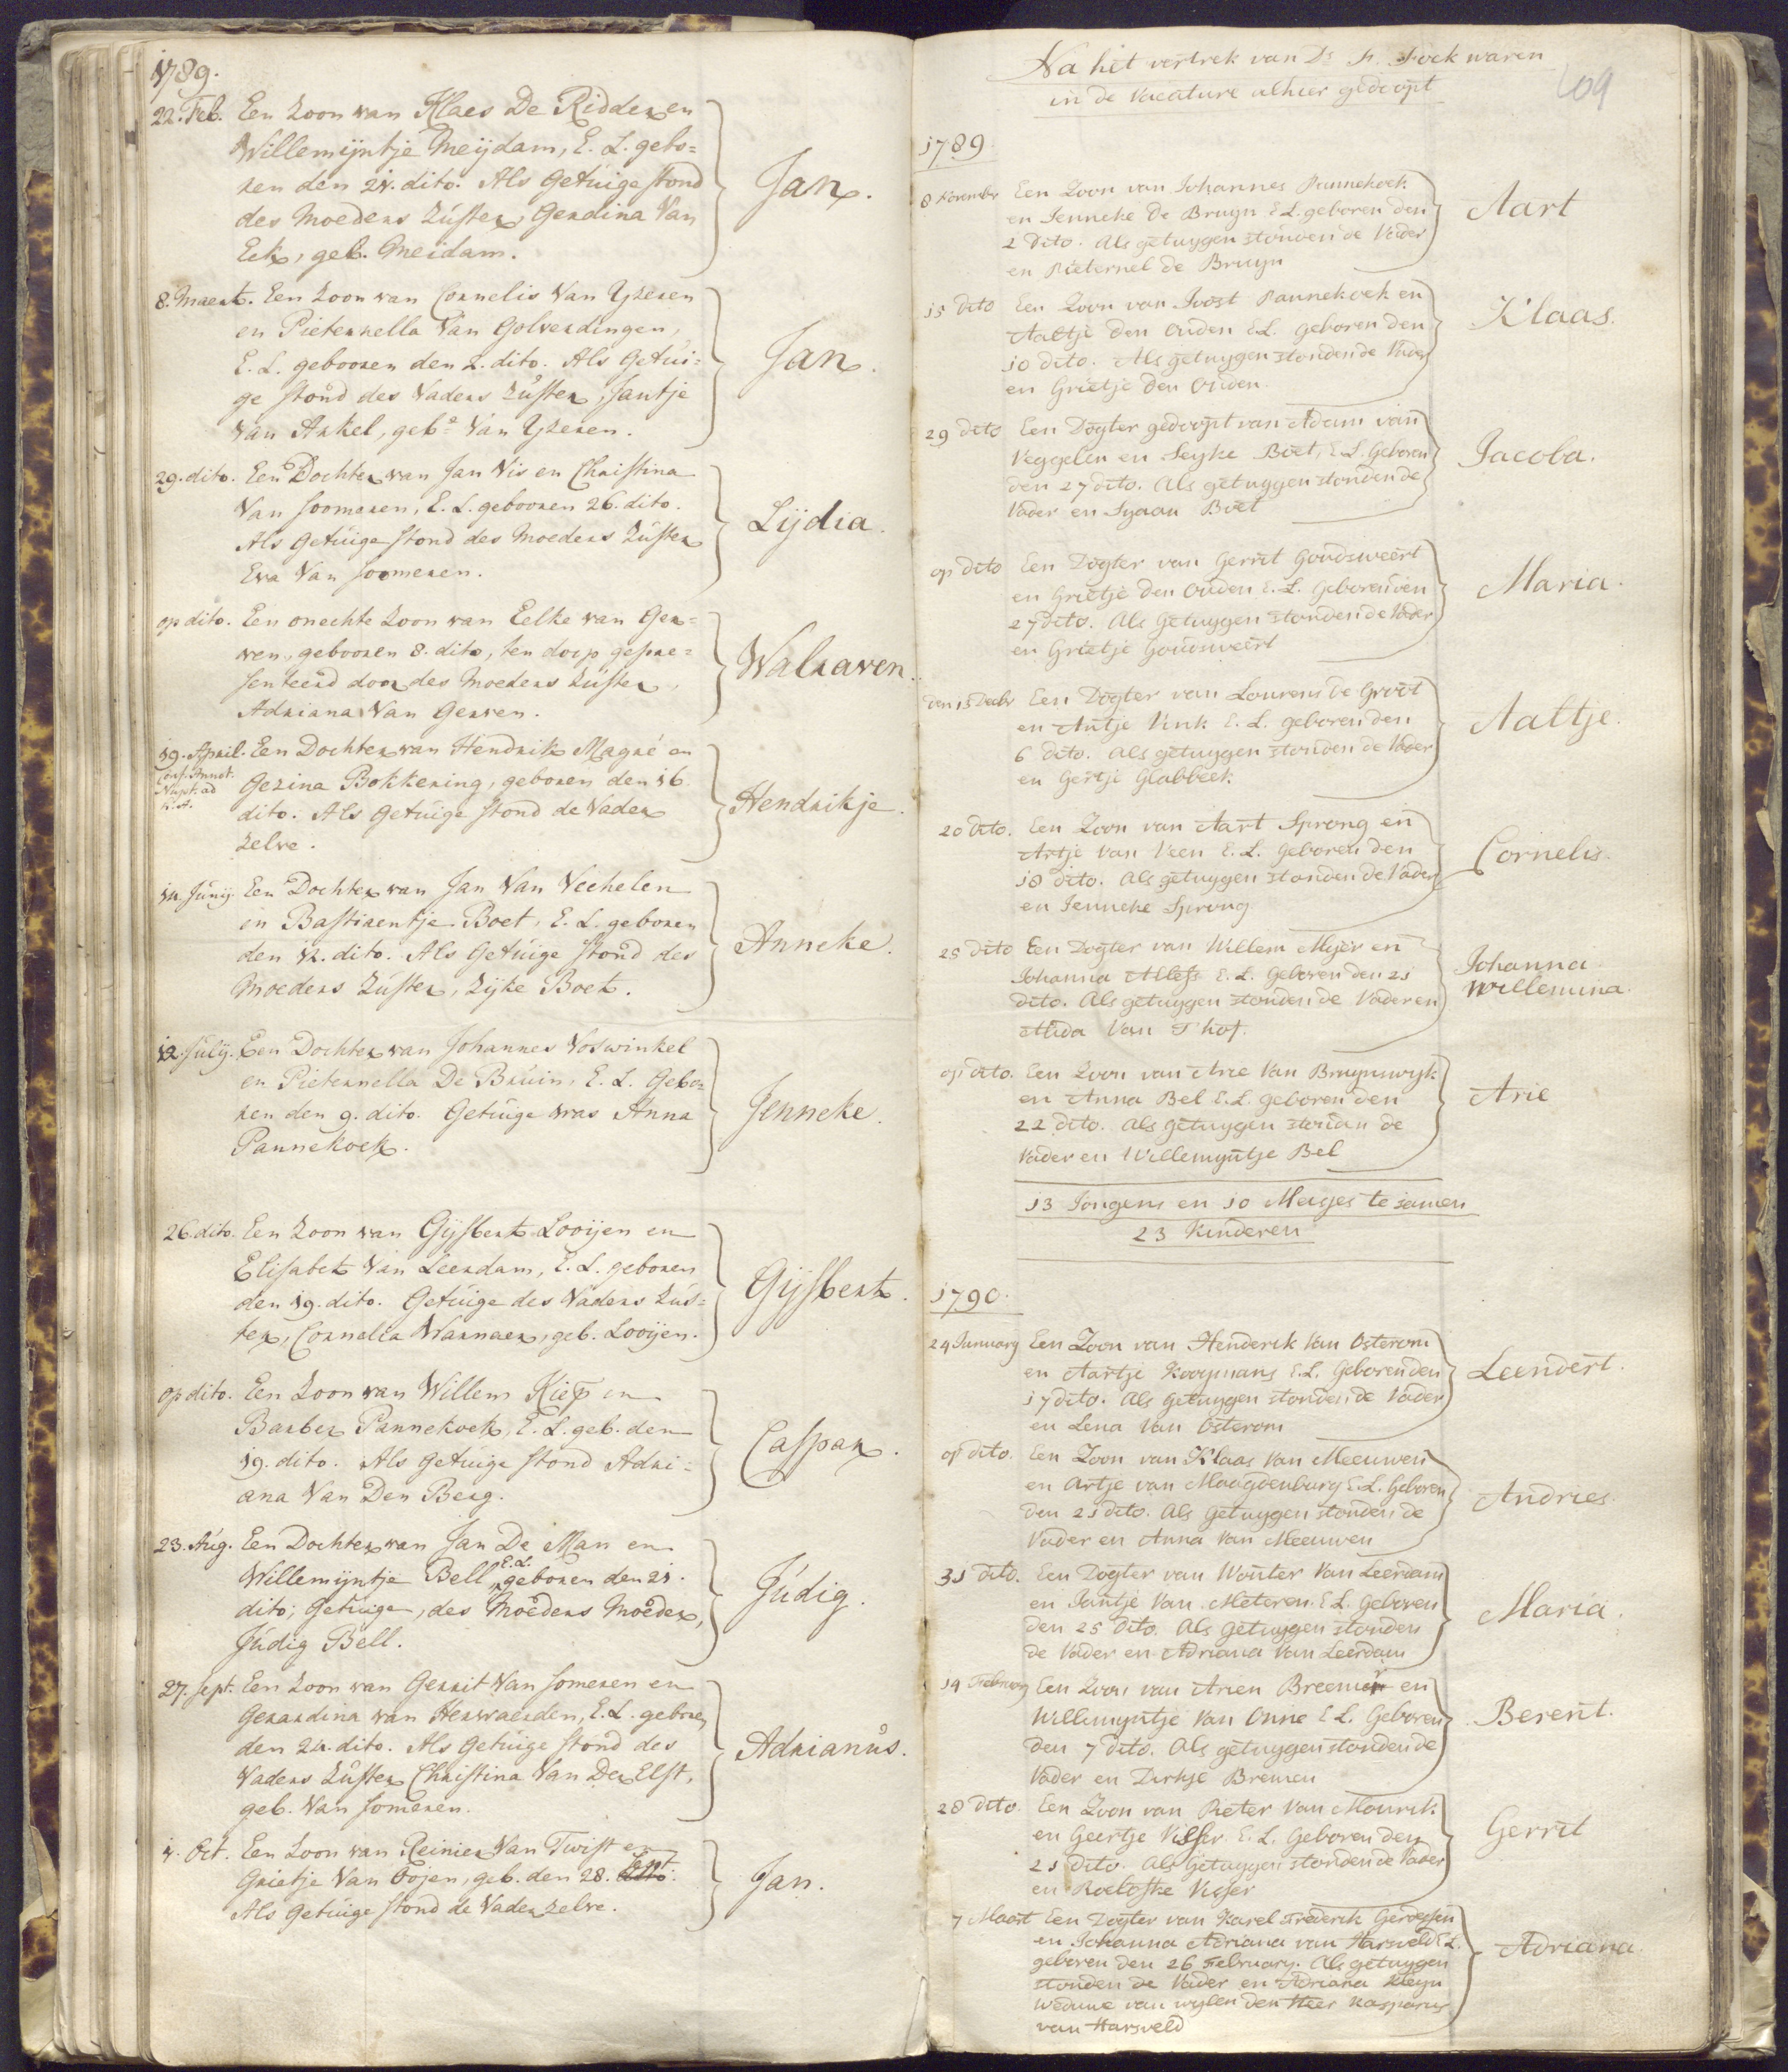 1789.
22. Feb. Een Zoon van Klaes De Ridder en
Willemijntje Meijdam, E. L. gebo=
ren den 21. dito. Als Getuige stond
des Moeders Zúster, Gerdina Van
Eck, geb. Meidam.
Jan.
8. Maert. Een Zoon van Cornelis Van Yzeren
en Pieternella Van Golverdingen,
E. L. gebooren den 2. dito. Als Getúi=
ge stond des Vaders Zúster, Jantje
Van Arkel, geb.e Van Yzeren.
Jan.
29. dito. Een Dochter van Jan Vis en Christina
Van Soomeren, E. L. gebooren 26. dito.
Als Getúige stond des Moeders Zúster
Eva Van Soomeren.
Lijdia.
op dito. Een onechte Zoon van Eelke van Ger=
ven, gebooren 8. dito, ten doop gepre=
senteerd door des Moeders Zúster,
Adriana Van Gerven.
Walraven.
19. April. Een Dochter van Hendrik Magré en
Gezina Bokkering, geboren den 16.
dito. Als Getúige stond de Vader
zelve.
Hendrikje.
14. Júnij. Een Dochter van Jan Van Vechelen
en Bastiaentje Boet, E. L. geboren
den 12. dito. Als Getúige stond des
Moeders Zúster, Zijke Boet.
Anneke.
12. Júlij. Een Dochter van Johannes Voswinkel
en Pieternella De Brúin, E. L. Gebo=
ren den 9. dito. Getúige was Anna
Pannekoek.
Jenneke.
26. dito. Een Zoon van Gijsbert Looijen en
Elisabet Van Leerdam, E. L. geboren
den 19. dito. Getúige des Vaders Zús=
ter, Cornelia Warnaer, geb. Looijen.
Gijsbert.
op dito. Een Zoon van Willem Kiep en
Barber Pannekoek, E. L. geb. den
19. dito. Als Getúige stond Adri=
ana Van Den Berg.
Caspar.
23. Aúg. Een Dochter van Jan De Man en
Willemijntje Bell, E. L. geboren den 21.
dito; Getúige, des Moeders Moeder,
Júdig Bell.
Júdig.
27. Sept. Een Zoon van Gerrit Van Someren en
Gerardina van Herwaerden, E. L. geboren
den 24. dito. Als Getúige stond des
Vaders Zúster Christina Van Der Elst,
geb. Van Someren.
Adrianús.
4. Oct. Een Zoon van Reinier Van Twist en
Grietje Van Oojen, geb. den 28. Sept.
Als Getúige stond de Vader zelve.
Jan.
109
Na het vertrek van Ds. Fr. Fock waren
in de Vacature alhier gedoopt
1789
8 November Een Zoon van Johannes Pannekoek
en Jenneke de Bruyn E L. geboren den
2 Dito. Als getuygen stonden de Vader
en Pieternel de Bruyn
Aart
15 Dito Een Zoon van Joost Pannekoek en
Aaltje den Ouden E L. geboren den
10 dito. Als getuygen stonden de Vader
en Grietje den Ouden
Klaas.
29 dito Een Dogter gedoopt van Adam van
Veggelen en Seyke Boet, E L. Geboren
den 27 dito. Als getuygen stonden de
Vader en Sijaan Boet
Jacoba.
op dito Een Dogter van Gerrit Goudsweert
en Grietje den Ouden E. L. Geboren den
27 dito. Als Getuygen stonden de Vader
en Grietje Goudsweert
Maria.
den 13 Decbr Een Dogter van Lourens de Groot
en Antje Vink E. L. geboren den
6 dito. Als getuygen stonden de Vader
en Gertje Glabbeek
Aaltje.
20 dito. Een Zoon van Aart Sprong en
Artje van Veen E. L. Geboren den
18 dito. Als getuygen stonden de Vader
en Jenneke Sprong
Cornelis.
25 dito Een Dogter van Willem Myer en
Johanna Allefs E. L. Geboren den 21
dito. Als getuygen stonden de Vader en
Alida Van T hof.
Johanna
Willemina.
op dito. Een Zoon van Arie Van Bruynswyk
en Anna Bel E. L. geboren den
22 dito. Als getuygen stondan de
Vader en Willemyntje Bel
Arie
13 Jongens en 10 Mesjes te samen
23 Kinderen
1790.
24 January Een Zoon van Henderik Van Osterom
en Aartje Kooymans E. L. Geboren den
17 dito. Als Getuygen stonden de Vader
en Lena Van Osterom
Leendert.
op dito. Een Zoon van Klaas Van Meeuwen
en Artje van Maagdenburg E. L. Geboren
den 21 dito. Als Getuygen stonden de
Vader en Anna Van Meeuwen
Andries.
31 dito. Een Dogter van Wouter Van Leerdam
en Jantje Van Meteren E L. Geboren
den 25 Dito. Als Getuygen stonden
de Vader en Adriana Van Leerdam
Maria.
14 February Een Zoon van Arien Breemer en
Willemyntje Van Onne E L. Geboren
den 7 dito. Als getuygen stonden de
Vader en Dirkje Bremen
Berent.
28 dito. Een Zoon van Pieter Van Mourik
en Geertje Visser E. L. Geboren den
21 dito. Als Getuygen stonden de Vader
en Roelofke Visser
Gerrit
7 Maart Een Dogter van Karel Frederik Gerdessen
en Johanna Adriana van Harsveld E L.
geboren den 26 February. Als getuygen
stonden de Vader en Adriana Kleyn
Weduwe van wylen den Heer Kasparus
van Harsveld
Adriana.